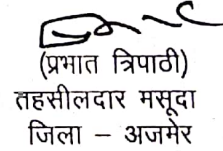 (प्रभात त्रिपाठी)
तहसीलदार मसूदा
जिला – अजमेर